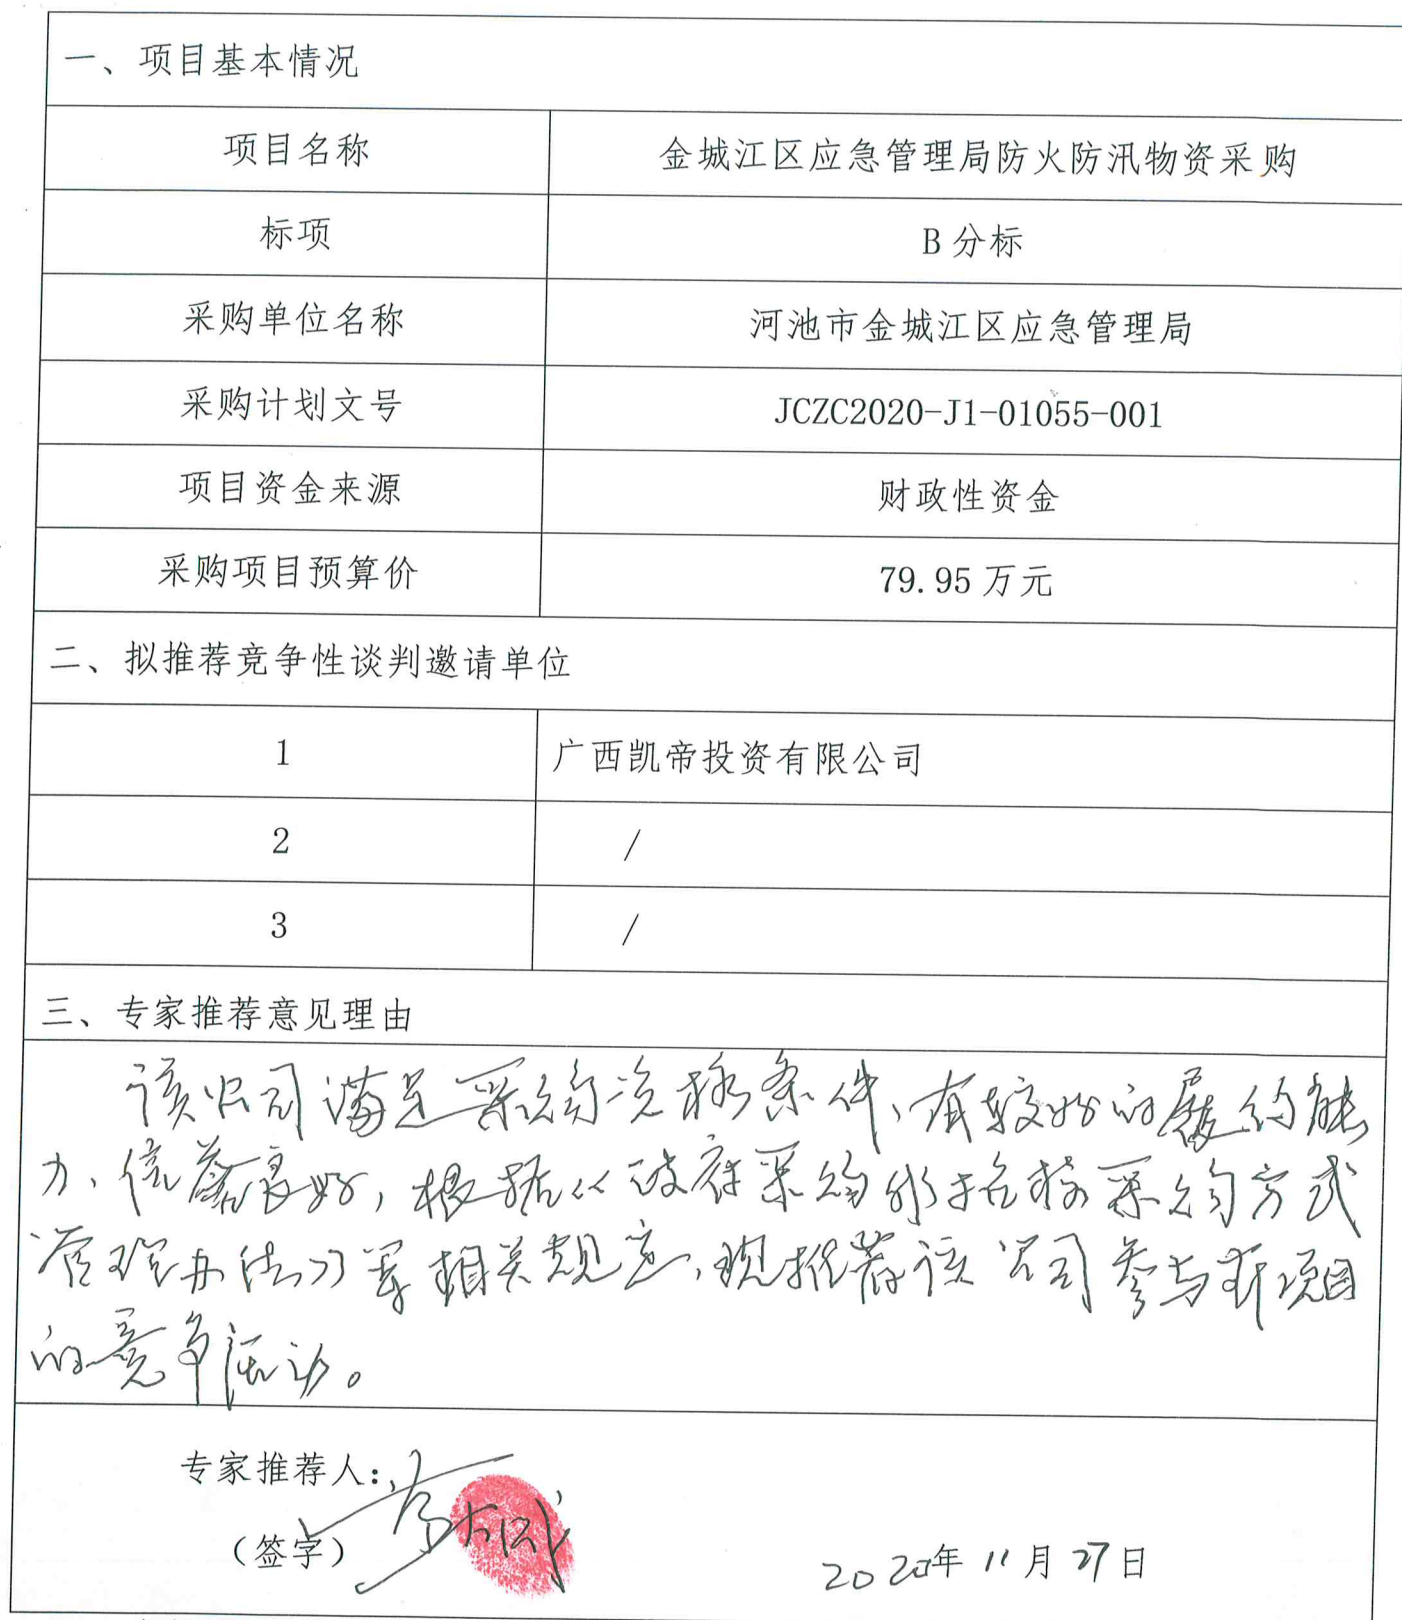 一、项目基本情况
项目名称 金城江区应急管理局防火防汛物资采购
标项 B 分标
采购单位名称 河池市金城江区应急管理局
采购计划文号 JCZC2020-J1-01055-001
项目资金来源 财政性资金
采购项目预算价 79.95 万元
二、拟推荐竞争性谈判邀请单位
1 广西凯帝投资有限公司
2 /
3 /
三、专家推荐意见理由
该公司满足采购资格条件、有较好的履约能
力、信誉良好,根据《政府采购非招标采购方式
管理办法》等相关规定,现推荐该公司参与本项目
的竞争活动。
专家推荐人:
(签字)
2020年 11月 27日